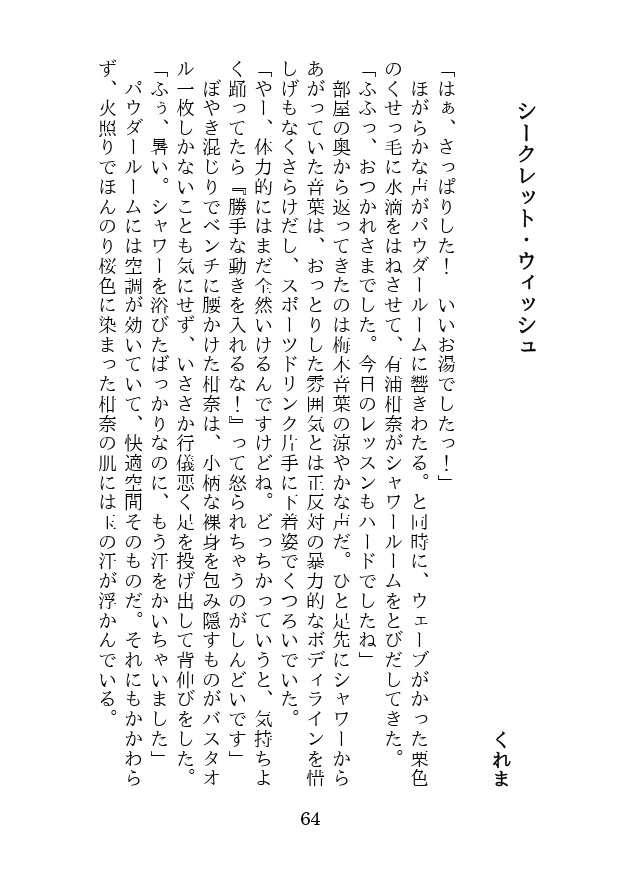 シークレット・ウィッシュ
くれま
「はぁ、さっぱりした！　いいお湯でしたっ！」
　ほがらかな声がパウダールームに響きわたる。と同時に、ウェーブがかった栗色
のくせっ毛に水滴をはねさせて、有浦柑奈がシャワールームをとびだしてきた。
「ふふっ、おつかれさまでした。今日のレッスンもハードでしたね」
　部屋の奥から返ってきたのは梅木音葉の涼やかな声だ。ひと足先にシャワーから
あがっていた音葉は、おっとりした雰囲気とは正反対の暴力的なボディラインを惜
しげもなくさらけだし、スポーツドリンク片手に下着姿でくつろいでいた。
「やー、体力的にはまだ全然いけるんですけどね。どっちかっていうと、気持ちよ
く踊ってたら『勝手な動きを入れるな！』って怒られちゃうのがしんどいです」
　ぼやき混じりでベンチに腰かけた柑奈は、小柄な裸身を包み隠すものがバスタオ
ル一枚しかないことも気にせず、いささか行儀悪く足を投げ出して背伸びをした。
「ふぅ、暑い。シャワーを浴びたばっかりなのに、もう汗をかいちゃいました」
　パウダールームには空調が効いていて、快適空間そのものだ。それにもかかわら
ず、火照りでほんのり桜色に染まった柑奈の肌には玉の汗が浮かんでいる。
64